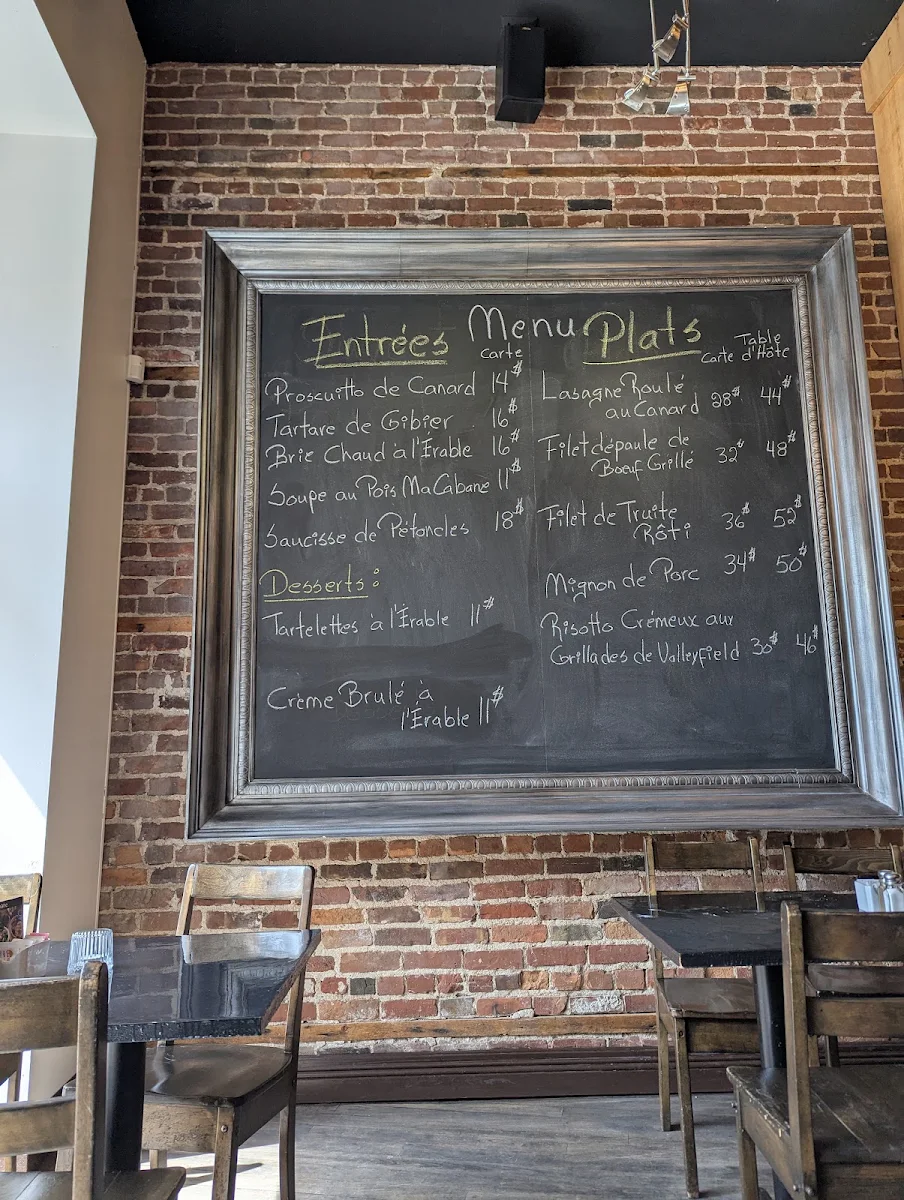 Menu
Entrées
Carte
Proscuitto de Canard 14$
Tartare de Gibier 16$
Brie Chaud à l'Érable 16$
Soupe au Pois Ma Cabane 11$
Saucisse de Pétoncles 18$
Desserts :
Tartelettes à l'Érable 11$
Crème Brulé à
l'Érable 11$
Plats
Table
Carte d'Hôte
Lasagne Roulé
au Canard 28$ 44$
Filet dépaule de
Boeuf Grillé 32$ 48$
Filet de Truite
Rôti 36$ 52$
Mignon de Porc 34$ 50$
Risotto Crémeux aux
Grillades de Valleyfield 30$ 46$